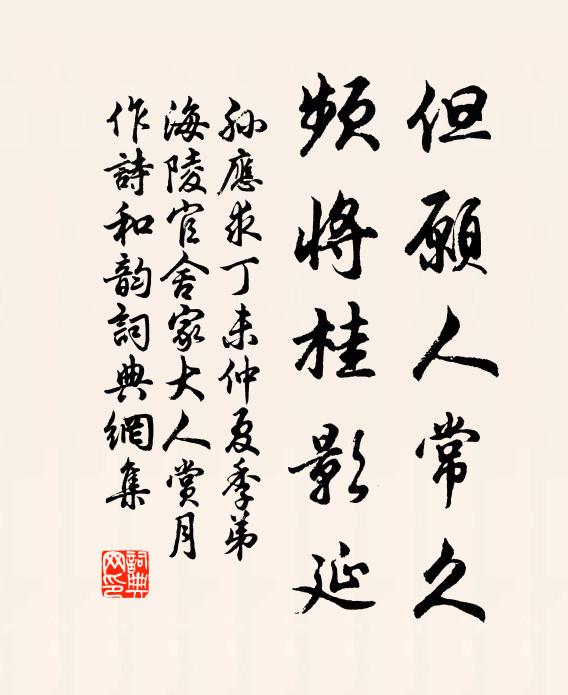 但願人常久
頻將桂影延
孫應求丁未仲夏季弟
海陵官舍家大人賞月
作詩和韵詞典網集
詞典
网印